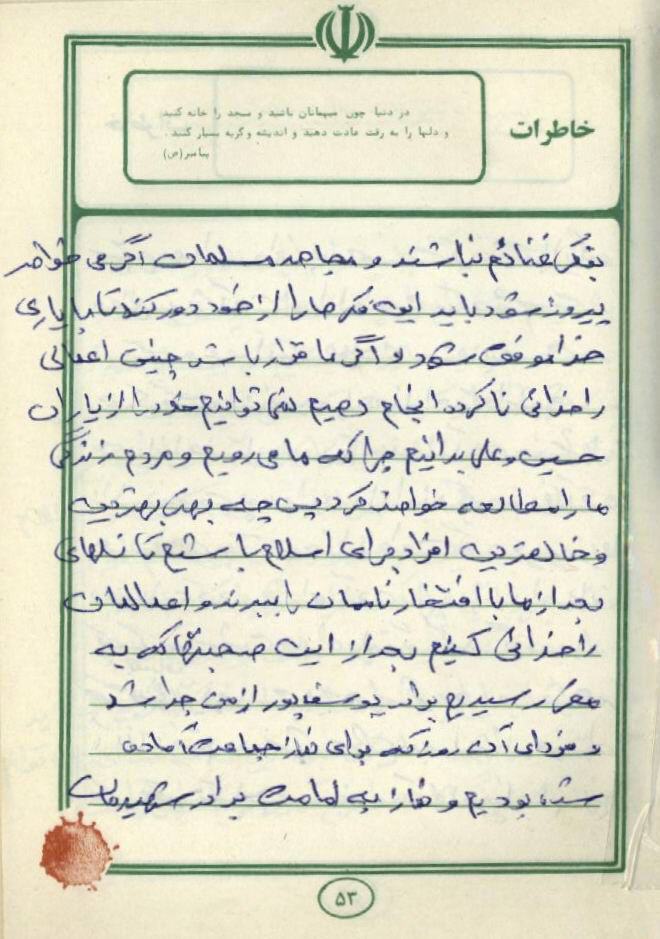 خاطرات
در دنیا چون میهمانان باشید و مسجد را خانه کنید
و دلها را به رقت عادت دهید و اندیشه و گریه بسیار کنید.
پیامبر(ص)
بفکر غنائم نباشند و مجاهد مسلمان اگر می خواهد
پیروز شود باید این فکرها را از خود دور کند تا با یاری
خدا موفق شود و اگر ما قرار باشد چنین اعمالی
را خدائی ناکرده انجام دهیم نمی توانیم خود را از یاران
حسین و علی بدانیم چرا که ما می رویم و مردم زندگی
ما را مطالعه خواهند کرد پس چه بهتر بهترین
و خالصترین افراد برای اسلام باشیم تا نسلهای
بعد از ما با افتخار ناممان را ببرند و اعمالمان
را خدائی کنیم بعد از این صحبتها که به
مقر رسیدیم برادر یوسف پور از من جدا شد
و فردای آن روز که برای نماز جماعت آماده
شده بودیم و نماز به امامت برادر شهیدمان
۵۳